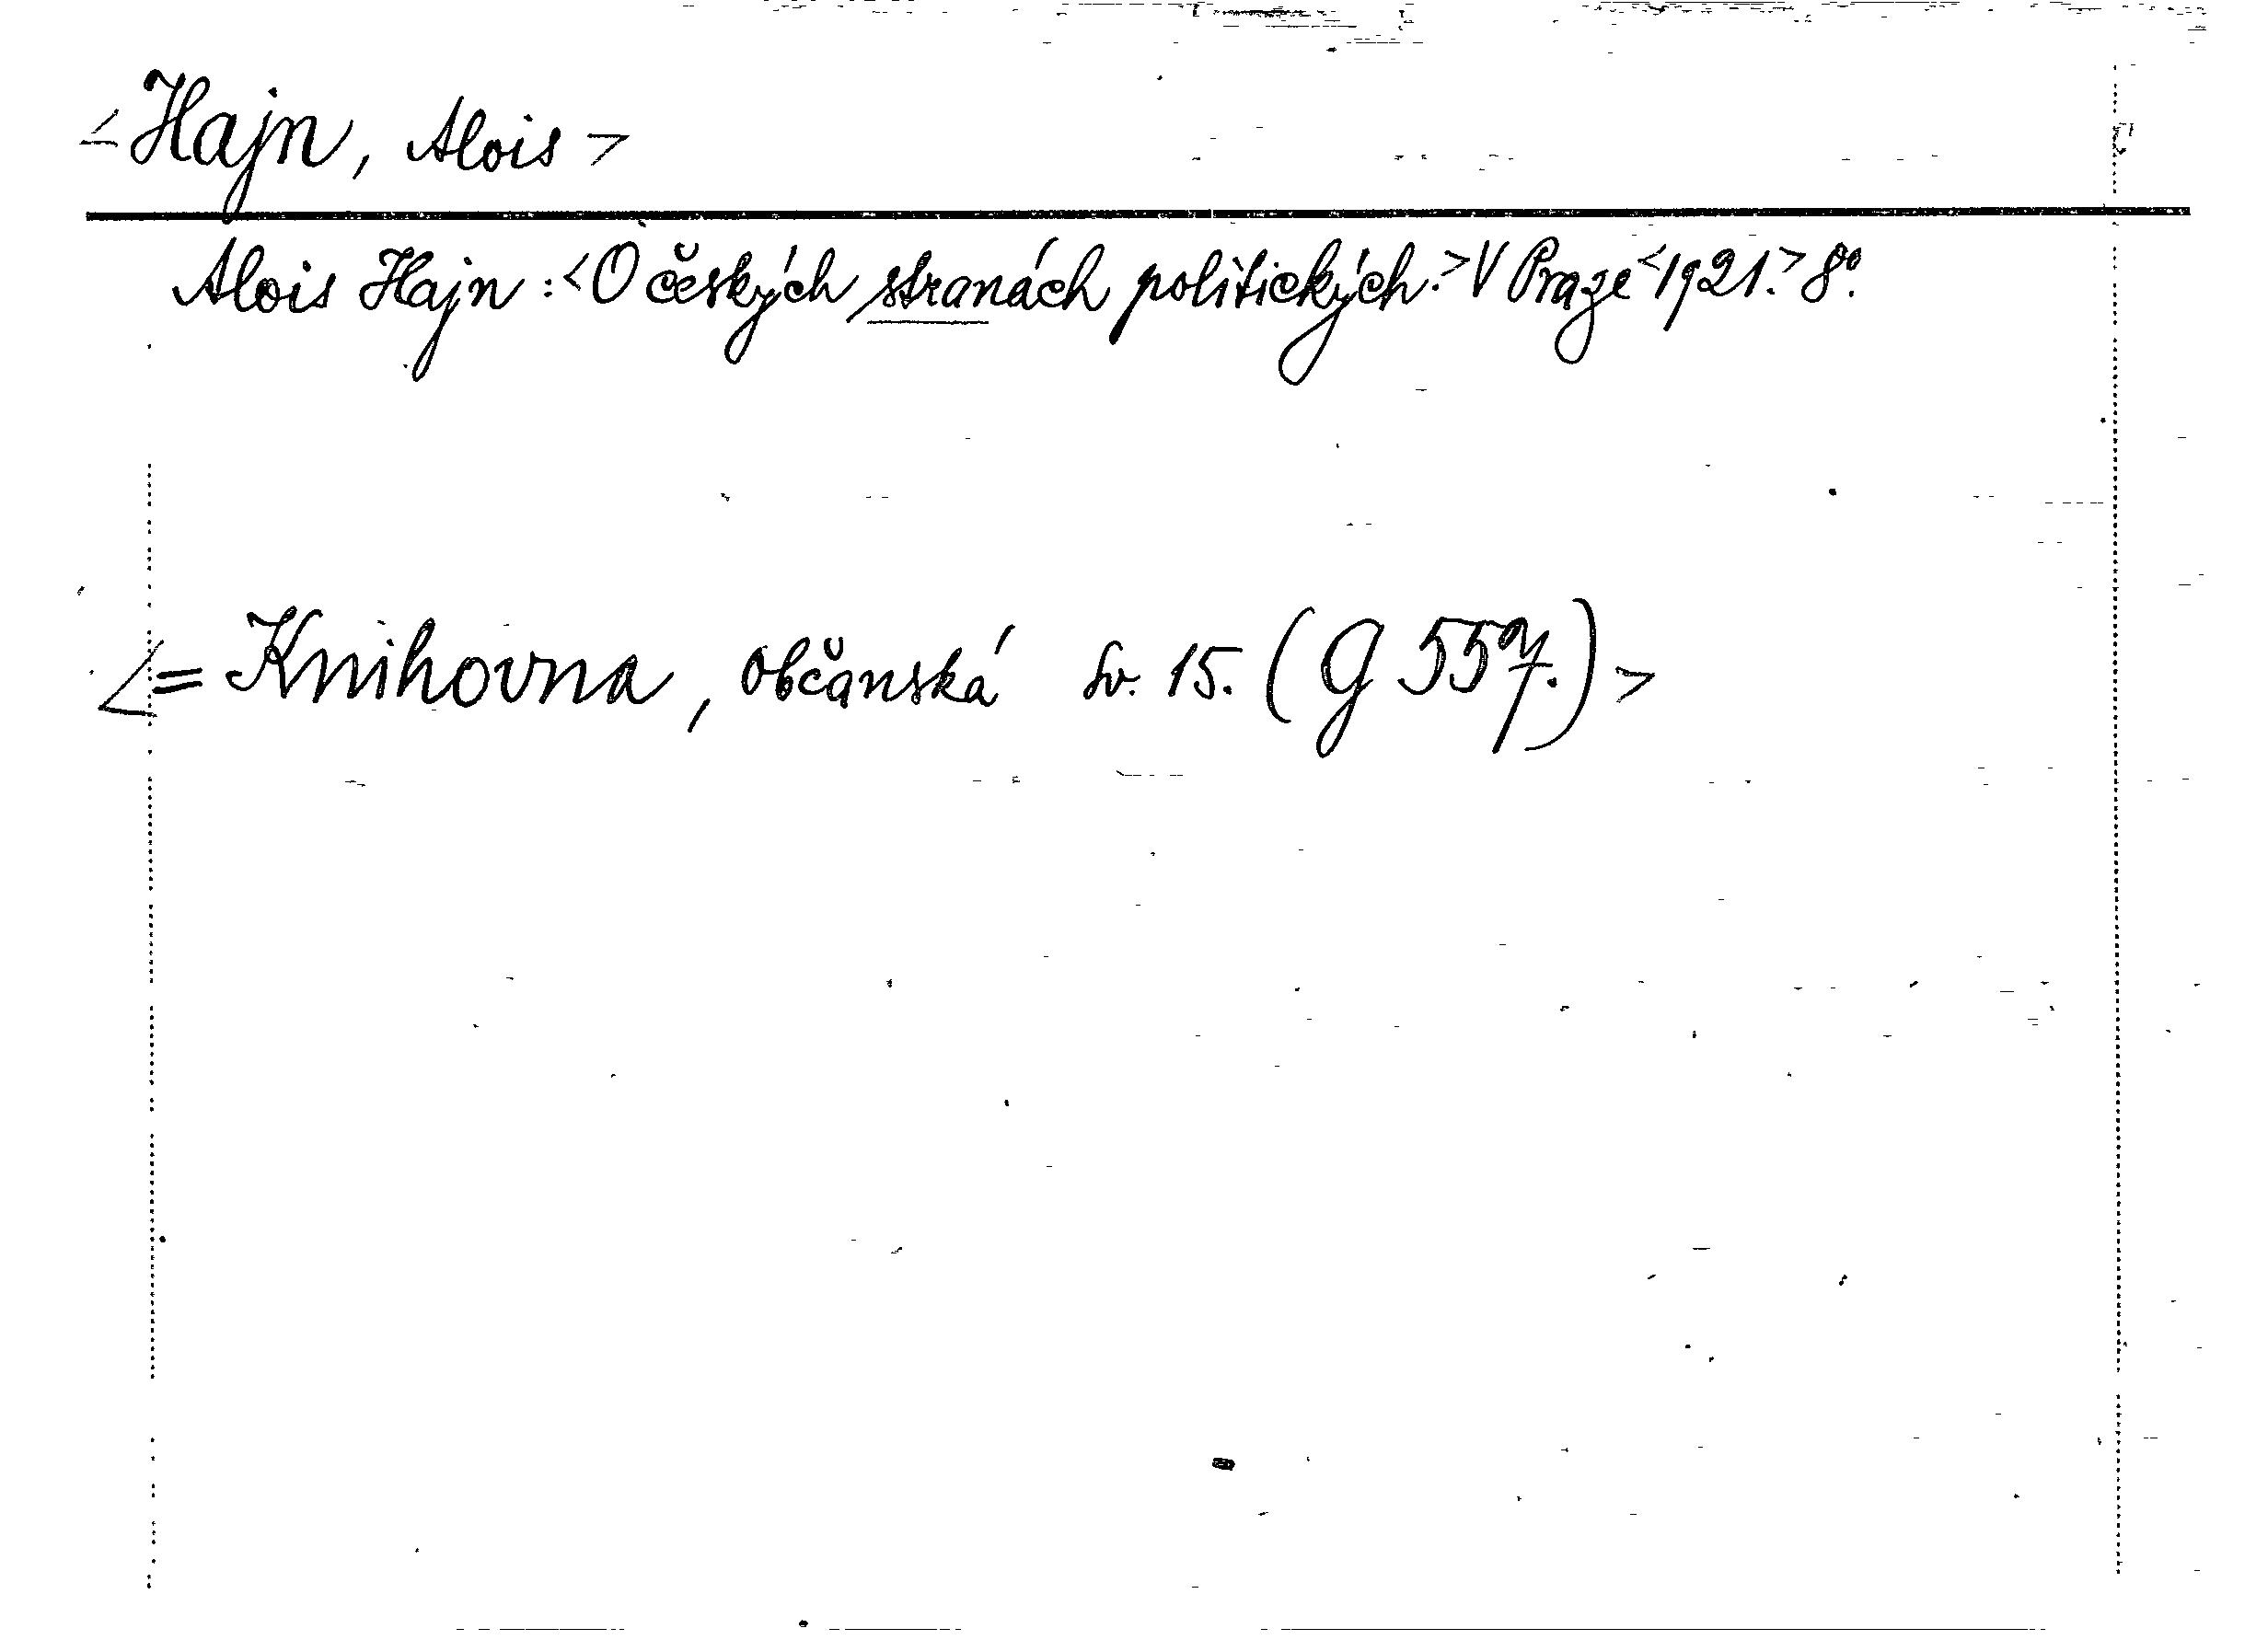 <Hajn, Alois>
Alois Hajn: <O českých stranách politických.> V Praze <1921.> 8º.
<= Knihovna, občanská Sv. 15. (G 557.)>